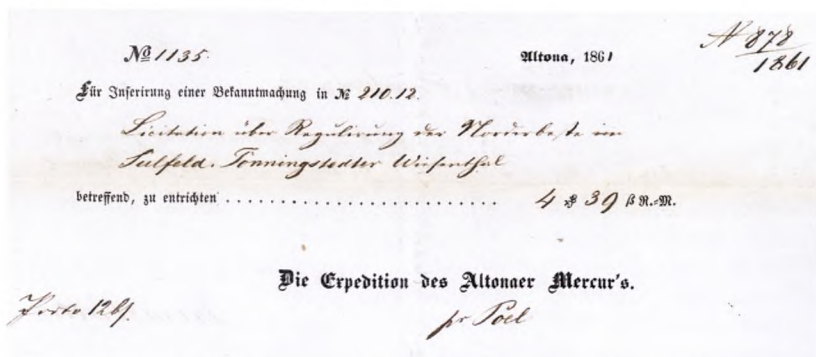 № 1135.
Altona, 1861
N 878
1861
Für Inserirung einer Bekanntmachung in № 210.12.
Licitation über Regulirung der Norderbeste im
Sülfeld-Tönningstedter Wiesenthal
betreffend, zu entrichten . . . . . . . . . . . . . . . . . . . . . . . . . 4 ₰ 39 ß R.-M.
Die Expedition des Altonaer Mercur's.
Porto 12 ß.
pr Poel